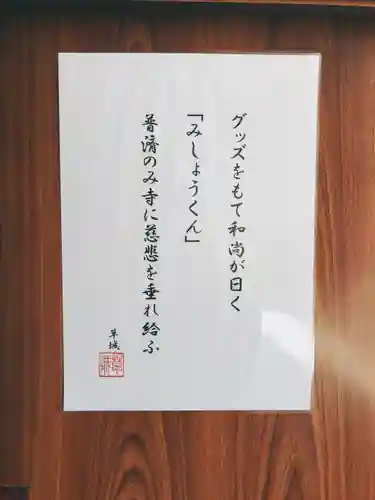 グッズをもて和尚が曰く
「みしょうくん」
普濟のみ寺に慈悲を垂れ給ふ
草城